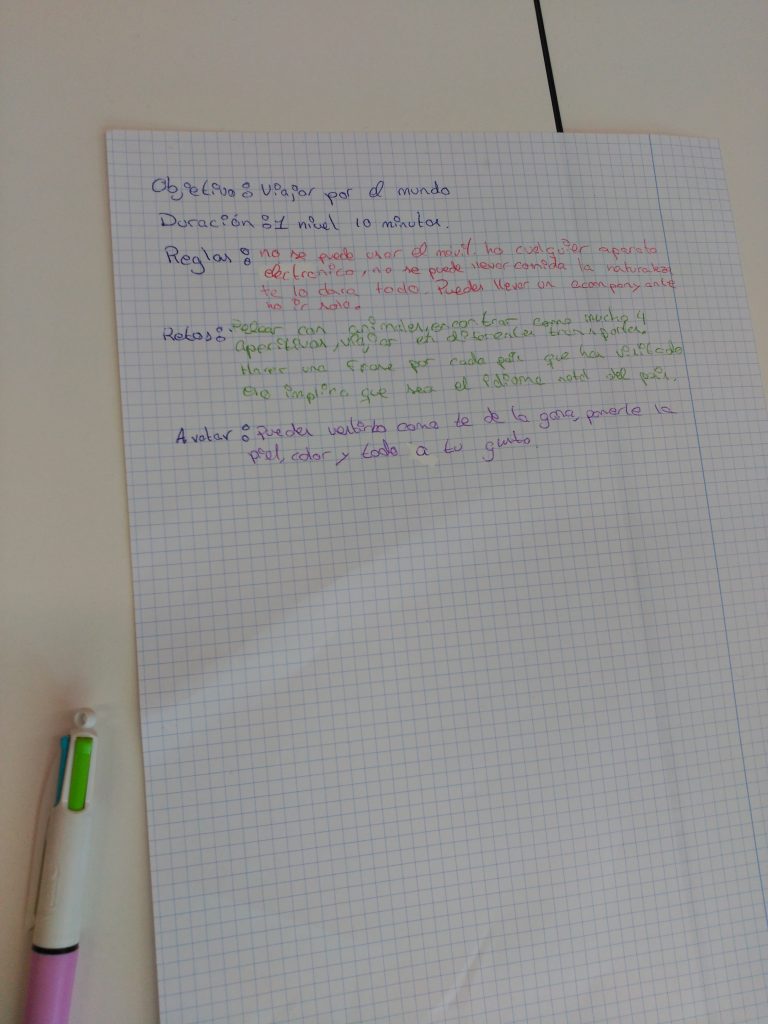 Objetivo: Viajar por el mundo
Duración: 1 nivel 10 minutos.
Reglas: no se puede usar el móvil, ho cuelquier aparato
electronico, no se puede llever comida la naturaleza
te lo dara todo. Puedes llever un acompanyante
no ir solo.
Retos: Pelear con animales, encontrar como mucho 4
aperitivos, viajar en diferentes transportes.
Hacer una frase por cada pais que has visitado
eso implica que sea el idioma natal del pais.
Avatar: Puedes vestirlo como te de la gana, ponerle la
piel, color, y todo a tu gusto.